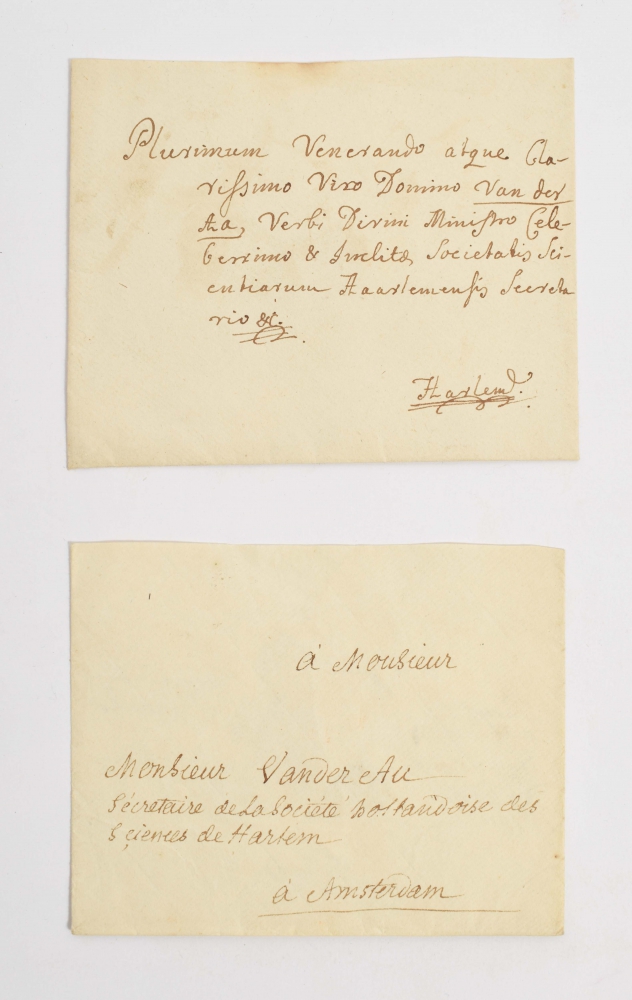 Plurimum Venerando atque Cla-
rissimo Viro Domino Van der
Aa, Verbi Divini Ministro Cele-
berrimo & Inclitæ Societatis Sci-
entiarum Haarlemensis Secreta
rio &c.
Harlem.
à Monsieur
Monsieur Vander Au
Sécretaire de La Société hollandoise des
Sçiences de Harlem
à Amsterdam